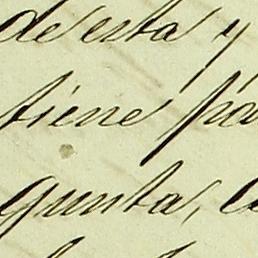 de esta y
tiene pa
gunta,